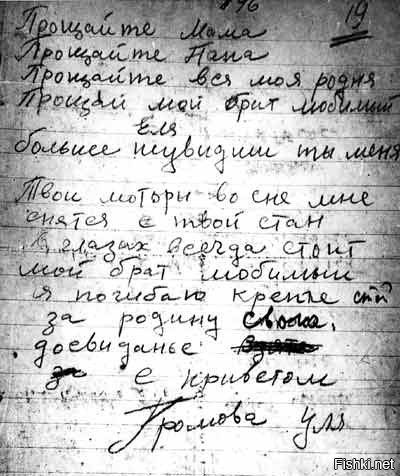 896
19
Прощайте Мама
Прощайте Папа
Прощайте вся моя родня
Прощай мой брат любимый
Еля
больше неувидиш ты меня
Твои моторы во сне мне
снятся е твой стан
в глазах всегда стоит
мой брат любимый
я погибаю крепче стой
за родину свою.
досвиданье
с приветом
Громова Уля
Fishki.net